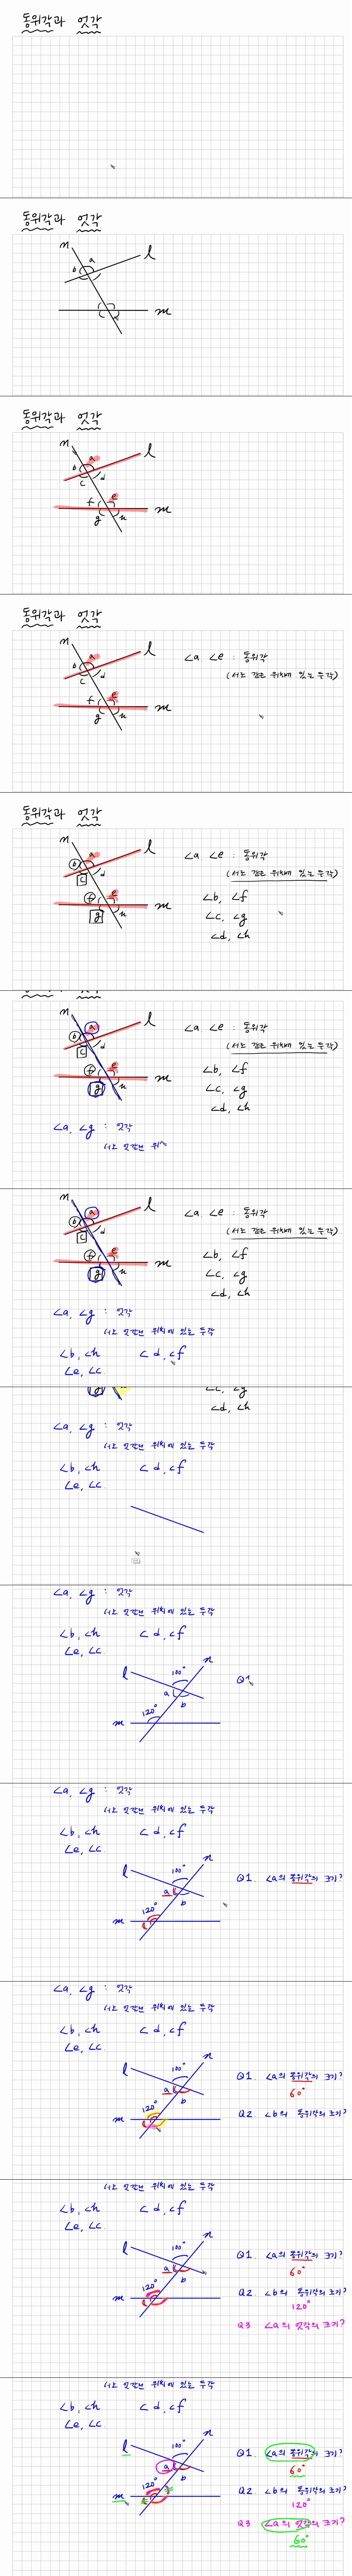 동위각과 엇각
동위각과 엇각
n
l
b a
m
동위각과 엇각
n
l
b a
c d
f e
m
g h
동위각과 엇각
n
l
b a
c d
f e
m
g h
∠a ∠e : 동위각
(서로 같은 위치에 있는 두각)
동위각과 엇각
n
l
b a
c d
f e
m
g h
∠a ∠e : 동위각
(서로 같은 위치에 있는 두각)
∠b, ∠f
∠c, ∠g
∠d, ∠h
동위각과 엇각
n
l
b a
c d
f e
m
g h
∠a ∠e : 동위각
(서로 같은 위치에 있는 두각)
∠b, ∠f
∠c, ∠g
∠d, ∠h
∠a, ∠g : 엇각
서로 엇갈린 위
n
l
b a
c d
f e
m
g h
∠a ∠e : 동위각
(서로 같은 위치에 있는 두각)
∠b, ∠f
∠c, ∠g
∠d, ∠h
∠a, ∠g : 엇각
서로 엇갈린 위치에 있는 두각
∠b, ∠h ∠d, ∠f
∠e, ∠c.
g
∠c, ∠g
∠d, ∠h
∠a, ∠g : 엇각
서로 엇갈린 위치에 있는 두각
∠b, ∠h ∠d, ∠f
∠e, ∠c.
∠a, ∠g : 엇각
서로 엇갈린 위치에 있는 두각
∠b, ∠h ∠d, ∠f
∠e, ∠c.
n
l 100°
a
b
120°
m
Q1
∠a, ∠g : 엇각
서로 엇갈린 위치에 있는 두각
∠b, ∠h ∠d, ∠f
∠e, ∠c.
n
l 100°
a
b
120°
m
Q1. ∠a의 동위각의 크기?
∠a, ∠g : 엇각
서로 엇갈린 위치에 있는 두각
∠b, ∠h ∠d, ∠f
∠e, ∠c.
n
l 100°
a
b
120°
m
Q1. ∠a의 동위각의 크기?
60°
Q2. ∠b의 동위각의 크기?
서로 엇갈린 위치에 있는 두각
∠b, ∠h ∠d, ∠f
∠e, ∠c.
n
l 100°
a
b
120°
m
Q1. ∠a의 동위각의 크기?
60°
Q2. ∠b의 동위각의 크기?
120°
Q3 ∠a의 엇각의 크기?
서로 엇갈린 위치에 있는 두각
∠b, ∠h ∠d, ∠f
∠e, ∠c.
n
l 100°
a
b
120°
m
Q1. ∠a의 동위각의 크기?
60°
Q2. ∠b의 동위각의 크기?
120°
Q3 ∠a의 엇각의 크기?
60°